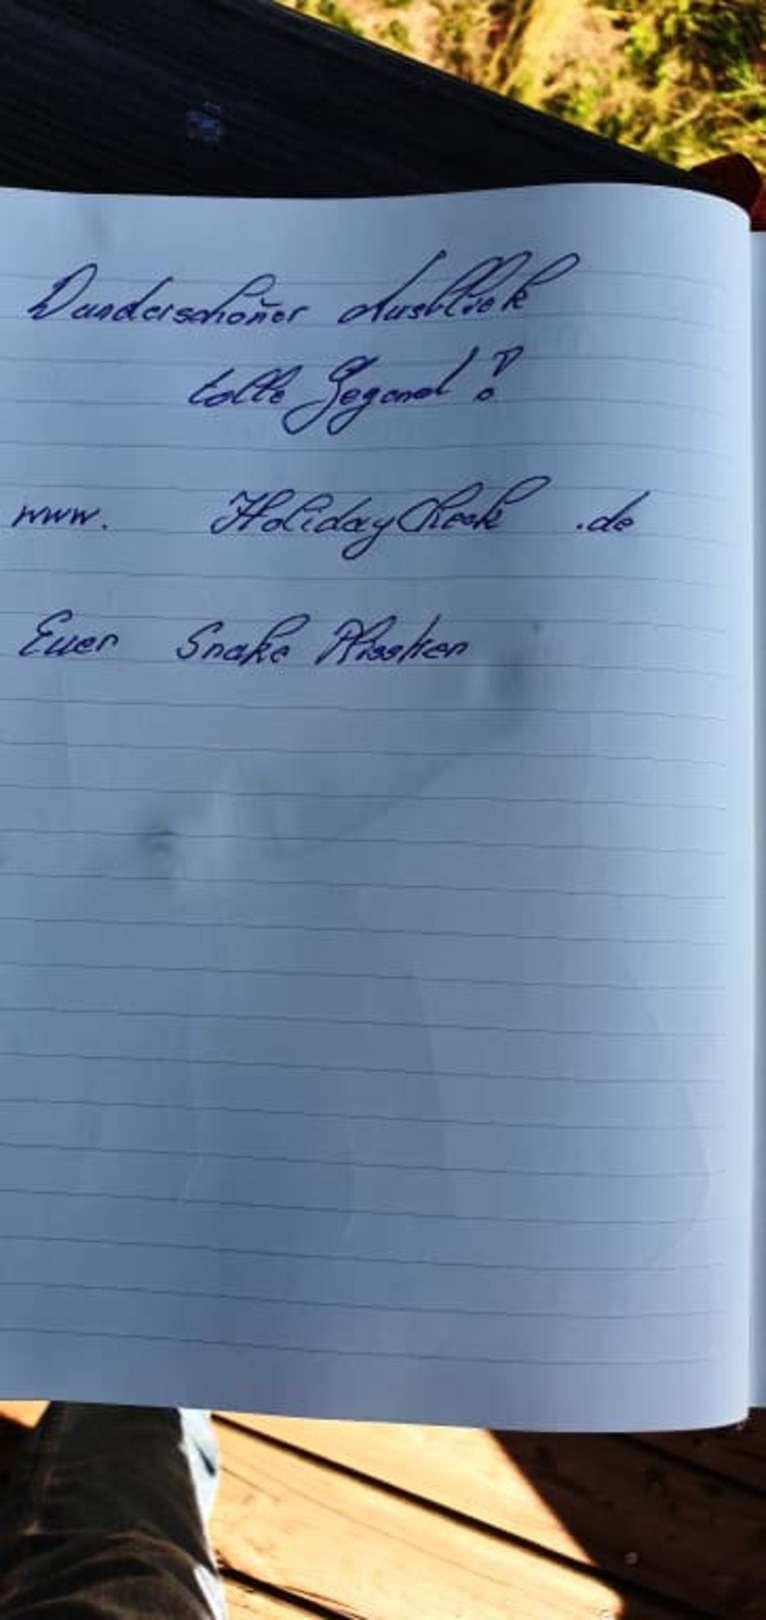 Wunderschöner Ausblick
tolle Gegend!
www. HolidayCheck .de
Euer Snake Plissken